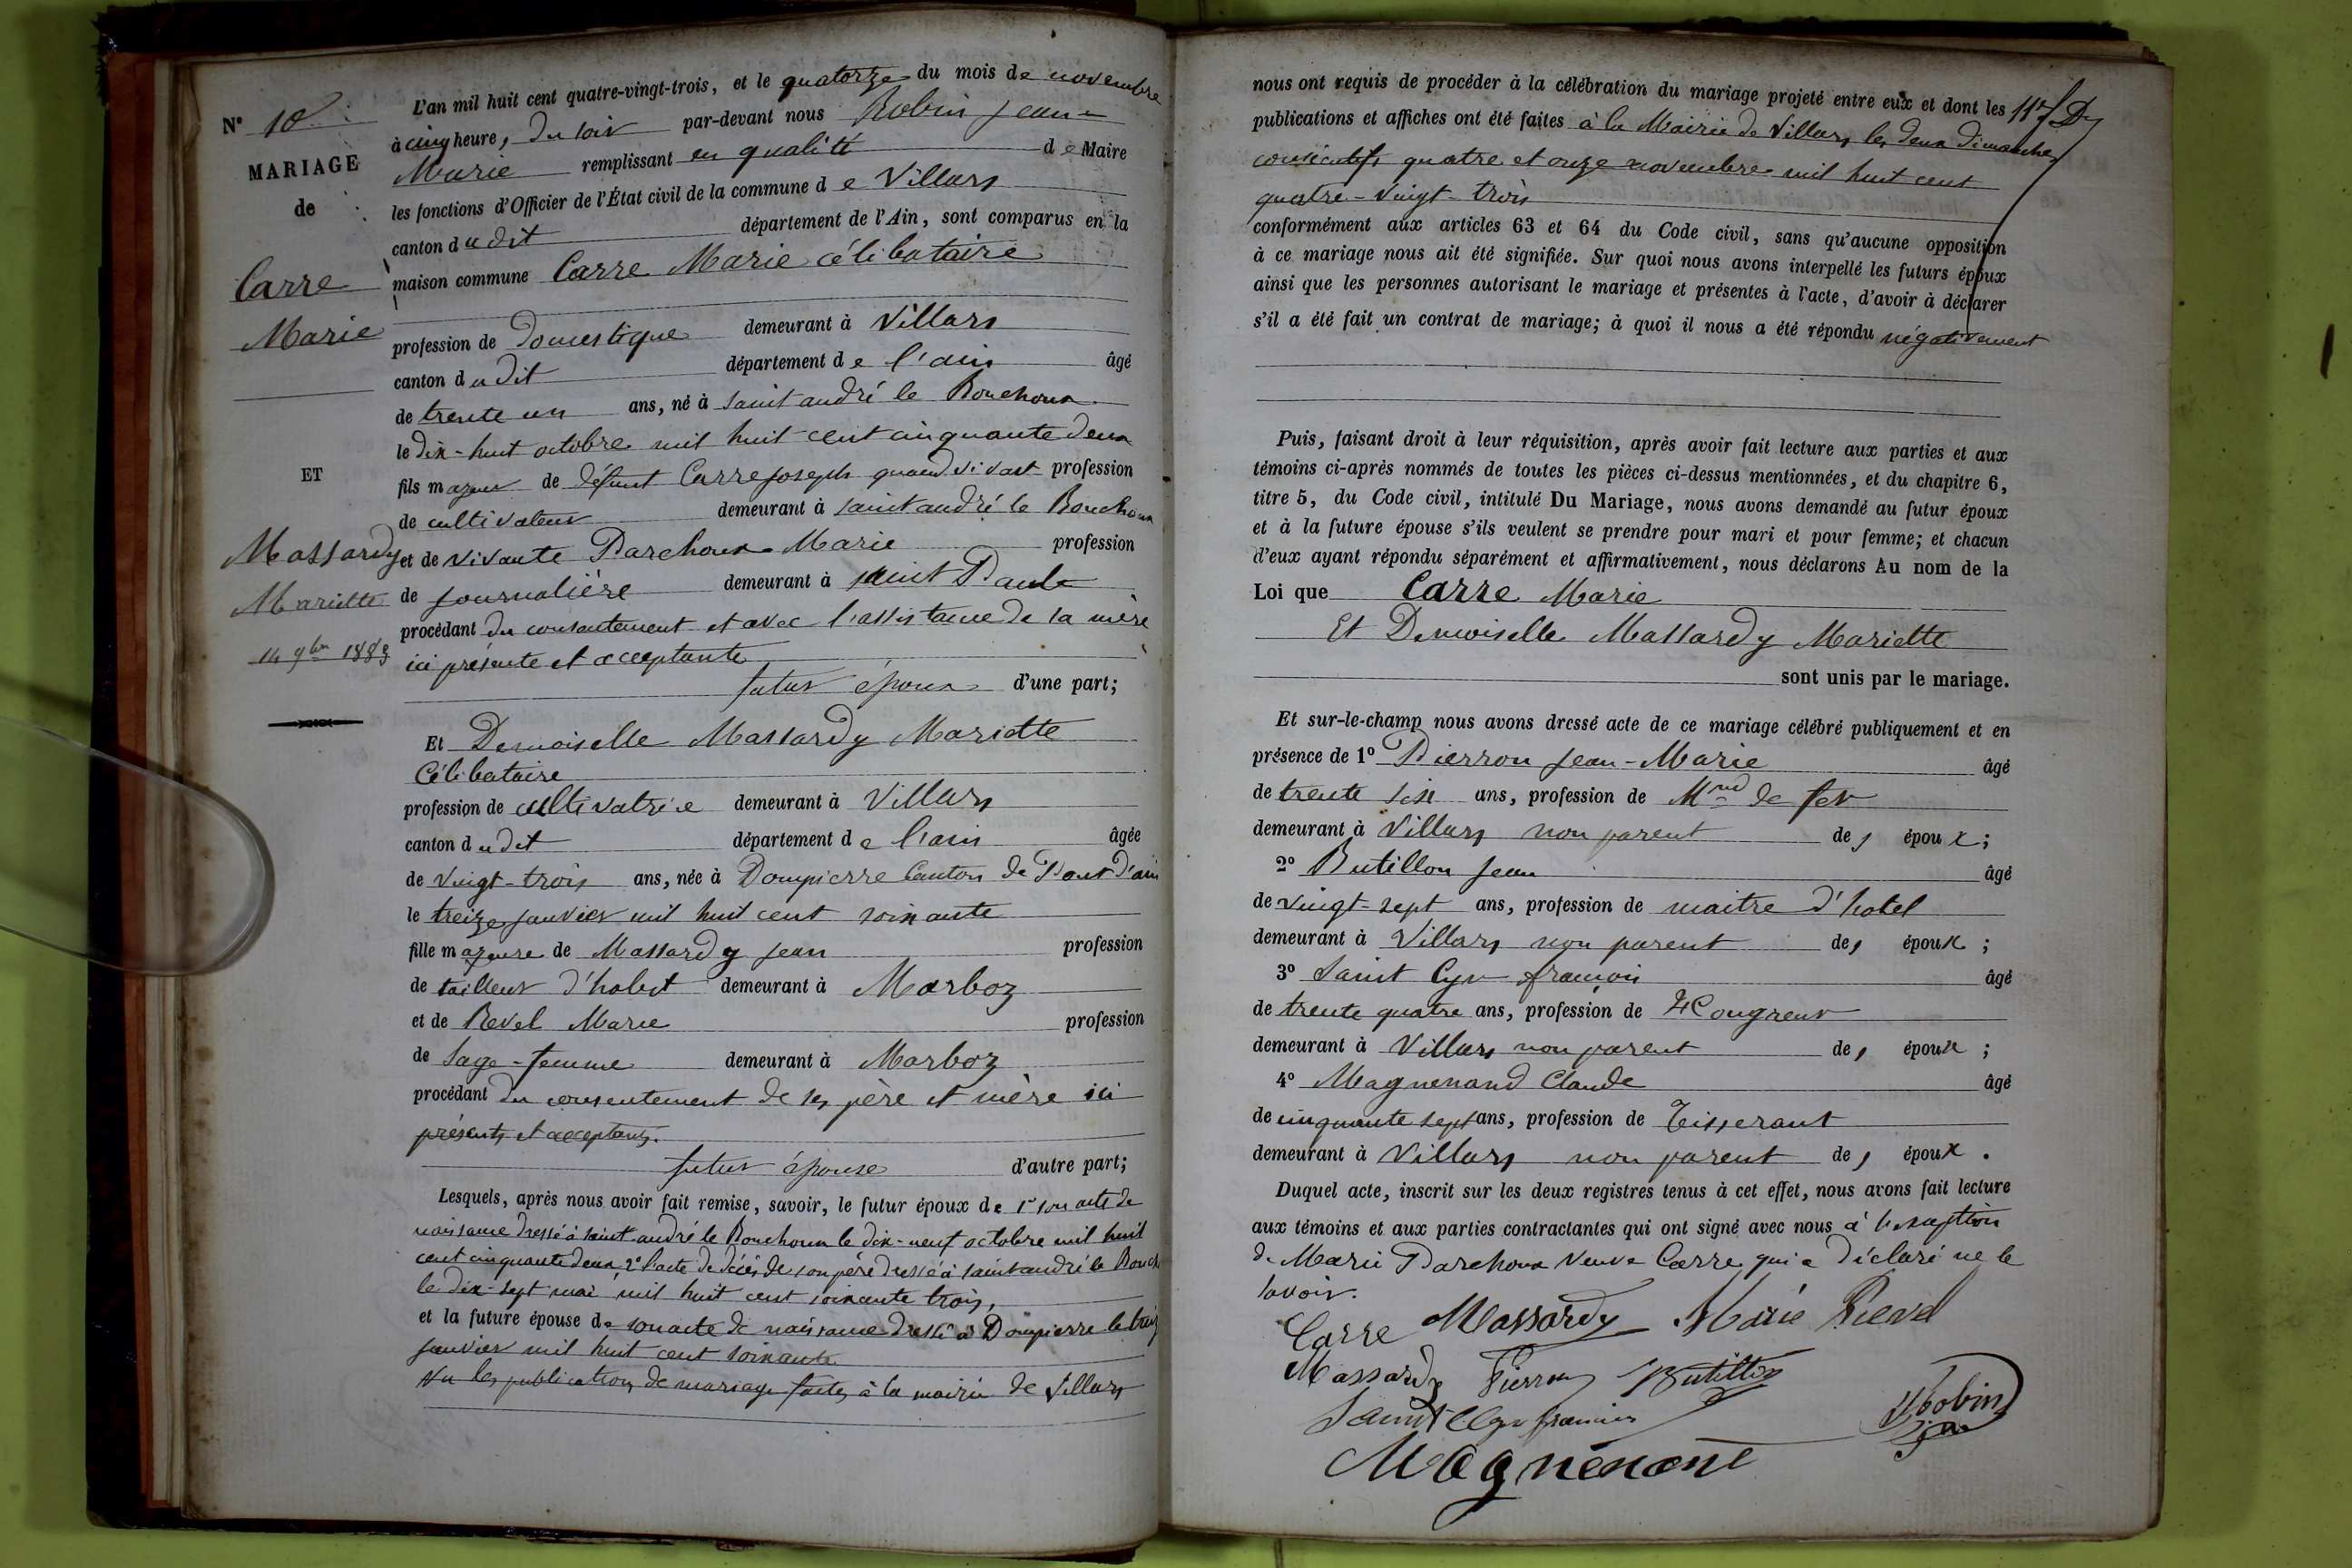 N° 18
MARIAGE
de
Carre
Marie
ET
Massardy
Mariette
14 9bre 1883
L'an mil huit cent quatre-vingt-trois, et le quatorze du mois de novembre
à cinq heure, du soir par-devant nous Robin Jean-
Marie remplissant en qualité de Maire
les fonctions d'Officier de l'État civil de la commune de Villars
canton dudit département de l'Ain, sont comparus en la
maison commune Carre Marie célibataire
profession de Domestique demeurant à Villars
canton dudit département de l'ain âgé
de trente un ans, né à Saint andré le Bouchoux
le dix-huit octobre mil huit cent cinquante deux
fils majeur de défunt Carre Joseph quand vivait profession
de cultivateur demeurant à Saint andré le Bouchoux
et de vivante Parchoux Marie profession
de journalière demeurant à Saint Paul
procédant du consentement et avec l'assistance de sa mère
ici présente et acceptante
futur époux d'une part;
Et Demoiselle Massardy Mariette
Célibataire
profession de cultivatrice demeurant à Villars
canton dudit département de l'ain âgée
de vingt-trois ans, née à Dompierre Canton de Pont d'ain
le treize janvier mil huit cent soixante
fille majeure de Massardy Jean profession
de tailleur d'habit demeurant à Marboz
et de Revel Marie profession
de Sage-femme demeurant à Marboz
procédant du consentement de ses père et mère ici
présents et acceptants.
futur épouse d'autre part;
Lesquels, après nous avoir fait remise, savoir, le futur époux de 1° son acte de
naissance dressé à Saint andré le Bouchoux le dix-neuf octobre mil huit
cent cinquante deux, 2° l'acte de décès de son père dressé à Saint andré le Bouch
le dix-sept mai mil huit cent soixante trois,
et la future épouse de son acte de naissance dressé à Dompierre le treize
janvier mil huit cent soixante
Vu les publications de mariage faites à la mairie de Villars
nous ont requis de procéder à la célébration du mariage projeté entre eux et dont les
publications et affiches ont été faites à la Mairie de Villars les deux dimanches
consécutifs quatre et onze novembre mil huit cent
quatre-vingt-trois
conformément aux articles 63 et 64 du Code civil, sans qu'aucune opposition
à ce mariage nous ait été signifiée. Sur quoi nous avons interpellé les futurs époux
ainsi que les personnes autorisant le mariage et présentes à l'acte, d'avoir à déclarer
s'il a été fait un contrat de mariage; à quoi il nous a été répondu négativement
Puis, faisant droit à leur réquisition, après avoir fait lecture aux parties et aux
témoins ci-après nommés de toutes les pièces ci-dessus mentionnées, et du chapitre 6,
titre 5, du Code civil, intitulé Du Mariage, nous avons demandé au futur époux
et à la future épouse s'ils veulent se prendre pour mari et pour femme; et chacun
d'eux ayant répondu séparément et affirmativement, nous déclarons Au nom de la
Loi que Carre Marie
Et Demoiselle Massardy Mariette
sont unis par le mariage.
Et sur-le-champ nous avons dressé acte de ce mariage célébré publiquement et en
présence de 1° Pierron Jean-Marie âgé
de trente six ans, profession de Mnd de fer
demeurant à Villars non parent des époux;
2° Butillon Jean âgé
de vingt-sept ans, profession de maitre d'hotel
demeurant à Villars non parent des époux;
3° Saint Cyr françois âgé
de trente quatre ans, profession de
demeurant à Villars non parent des époux;
4° Magnenand Claude âgé
de cinquante sept ans, profession de Tisserant
demeurant à Villars non parent des époux.
Duquel acte, inscrit sur les deux registres tenus à cet effet, nous avons fait lecture
aux témoins et aux parties contractantes qui ont signé avec nous à l'exception
de Marie Parchoux Veuve Carre qui a déclaré ne le
savoir.
Carre Massardy Marie Revel
Massardy Pierron Butillon
Saint Cyr françois Robin
Magnénand